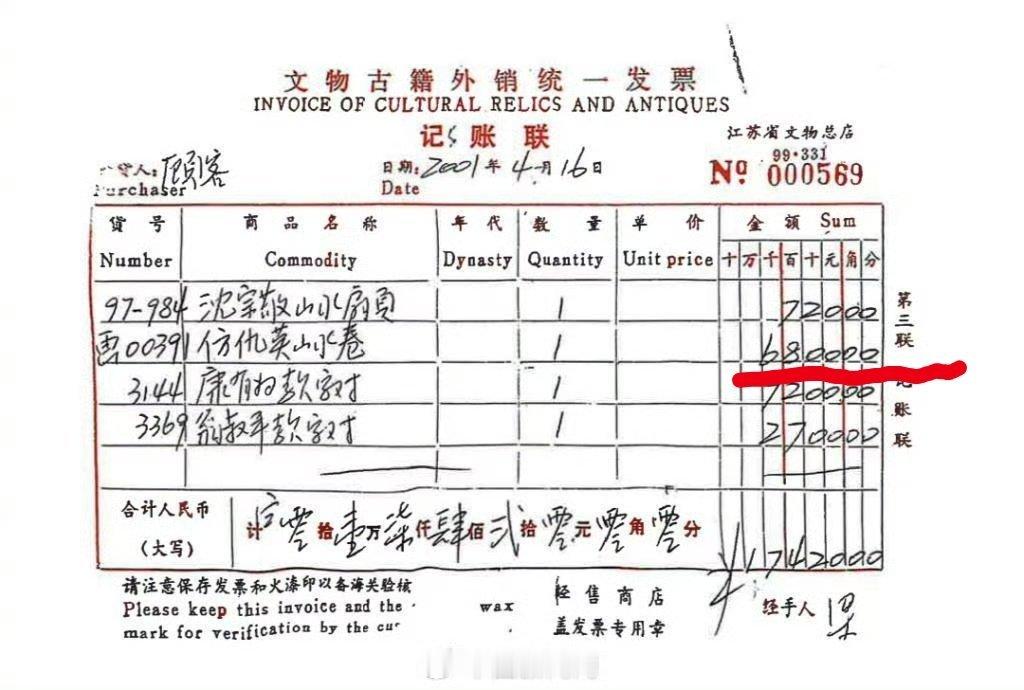 文物古籍外销统一发票
INVOICE OF CULTURAL RELICS AND ANTIQUES
记账联
江苏省文物总店
货人:顾客
Purchaser
日期:2001年4月16日
Date
99·331
No 000569
货号 商品名称 年代 数量 单价 金额 Sum
Number Commodity Dynasty Quantity Unit price 十万千百十元角分
97-984 沈宗敬山水扇頁 1 72000
00391 仿仇英山水卷 1 680000
3144 康有为款字对 1 720000
3369 翁叔平款字对 1 270000
第三联 记账联
合计人民币
(大写)
计 零拾壹万柒仟肆佰贰拾零元零角零分
¥1742000
请注意保存发票和火漆印以备海关验核
Please keep this invoice and the wax
mark for verification by the cus
经售商店
盖发票专用章
经手人